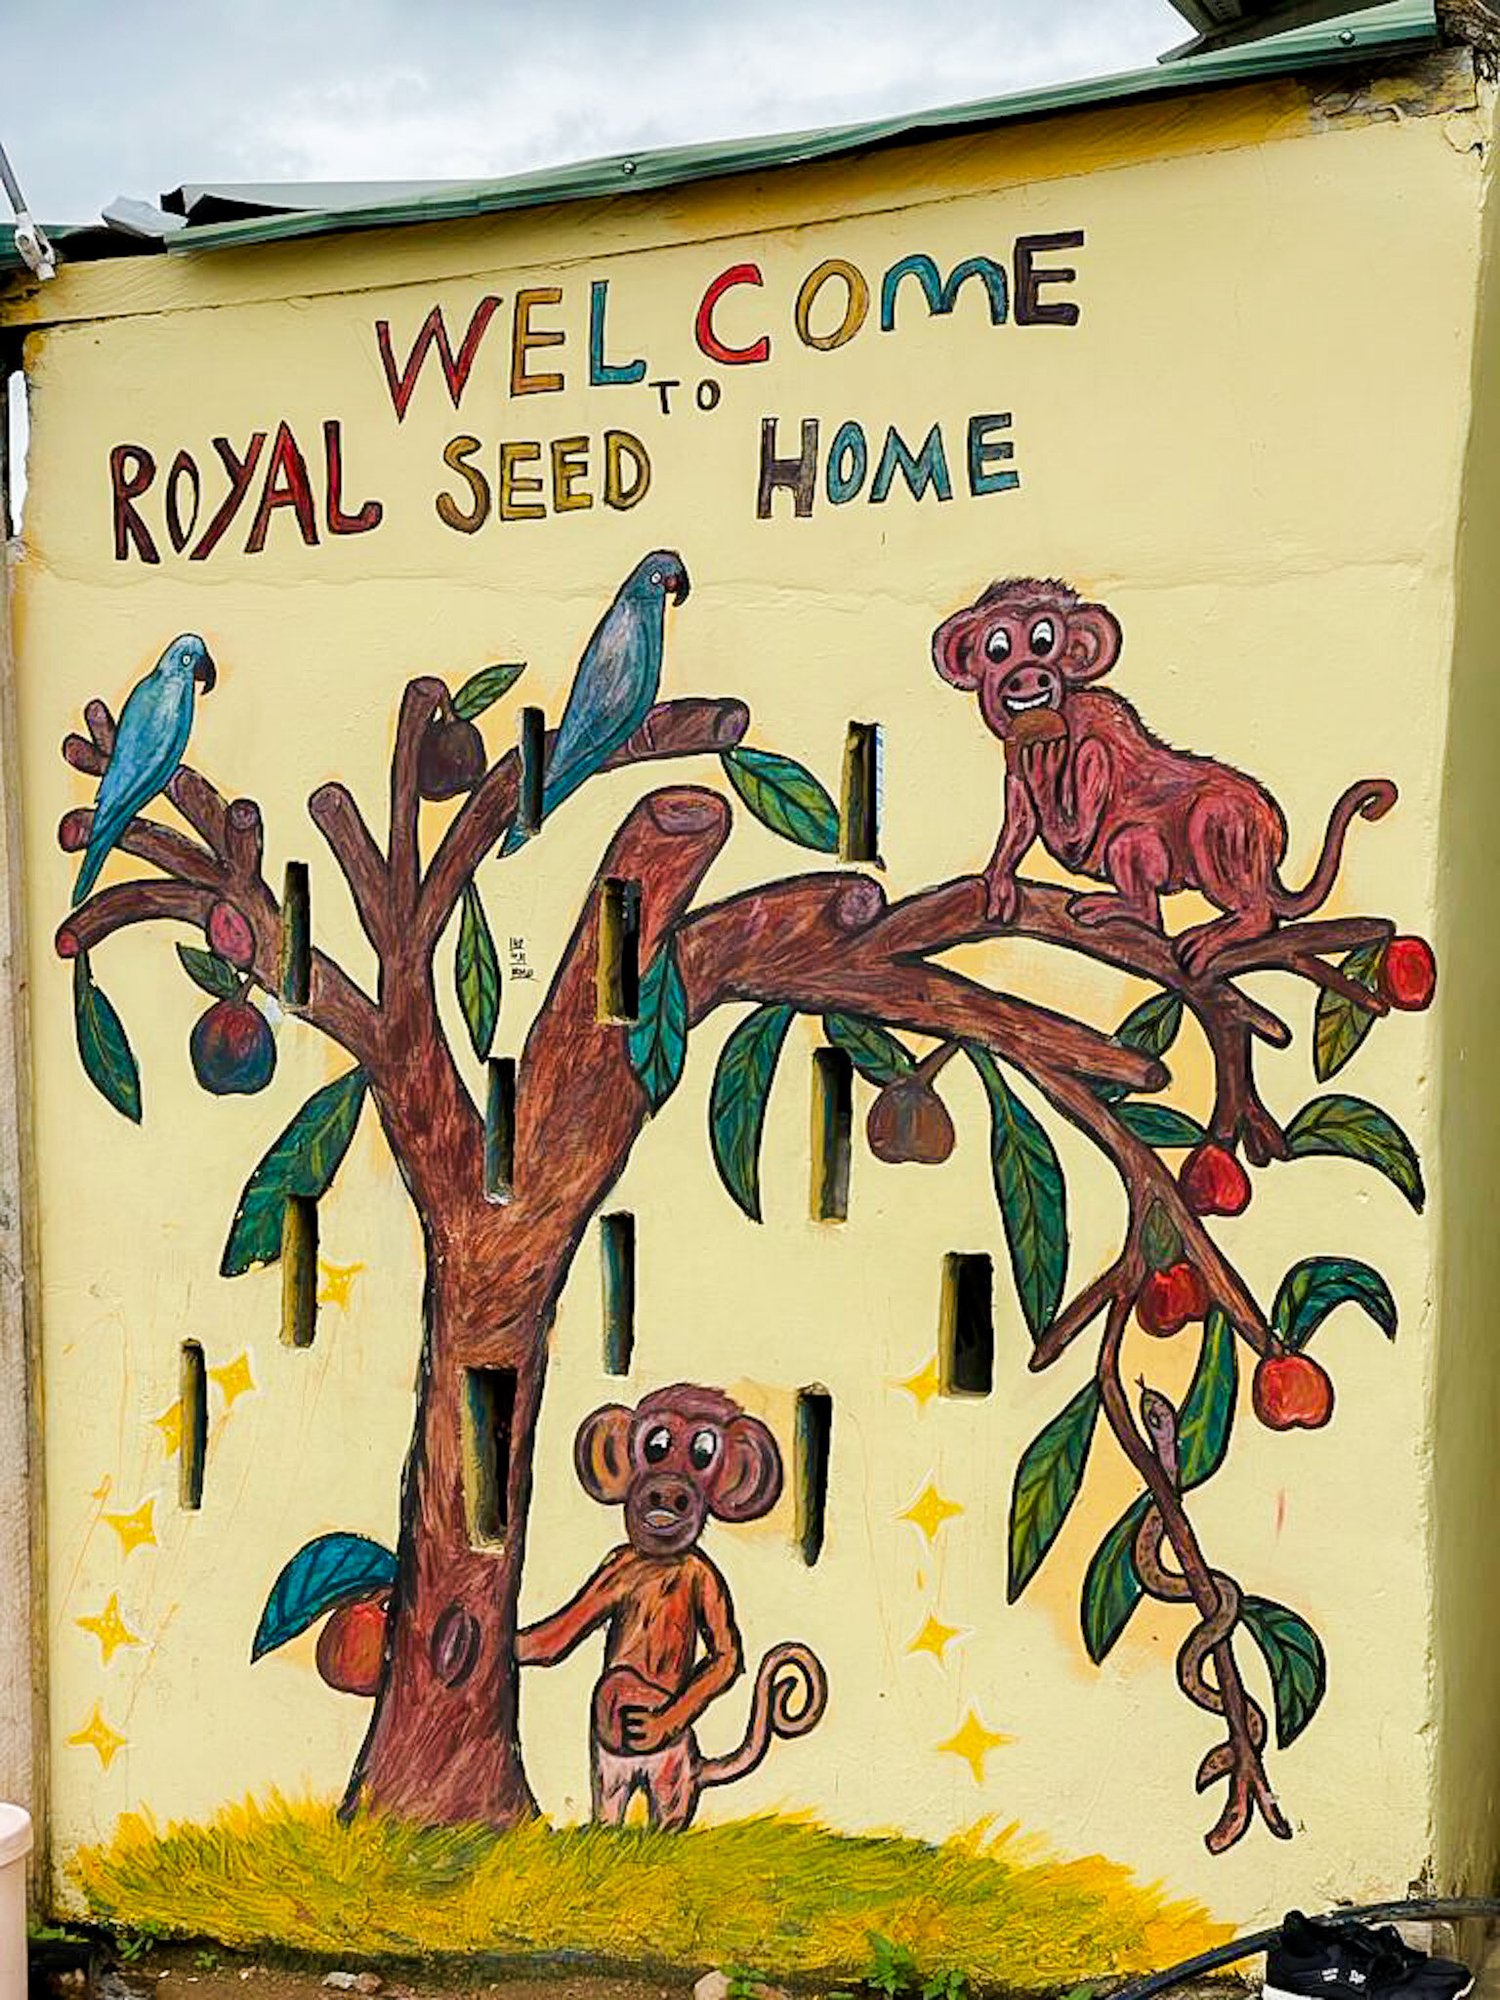 WELCOME
TO
ROYAL SEED HOME